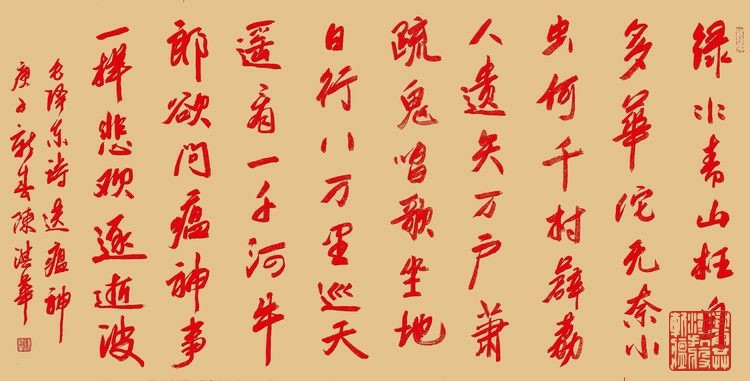 绿水青山枉自
多華佗无奈小
虫何千村薜荔
人遗矢万户萧
疏鬼唱歌坐地
日行八万里巡天
遥看一千河牛
郎欲问瘟神事
一样悲欢逐逝波
毛泽东诗送瘟神
庚子新春陳淇華